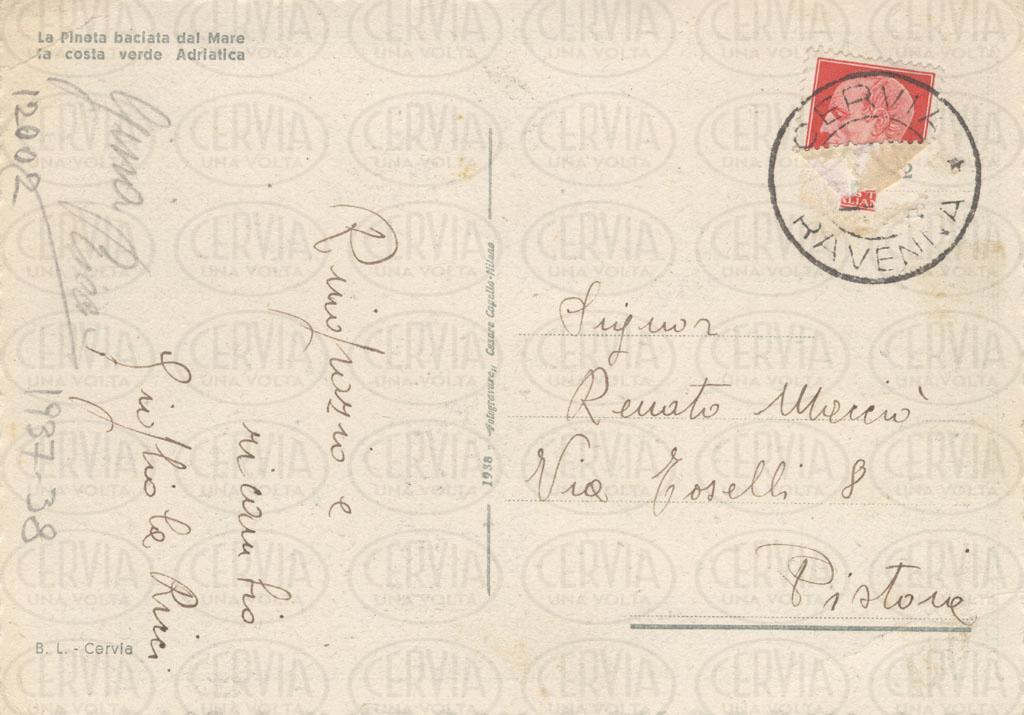 La Pineta baciata dal Mare
la costa verde Adriatica
12002
1937-38
Ringrazio e
ricambio
B. L. - Cervia
1938 - Fotogravure,, Cesare Capello-Milano
CERVIA
RAVENNA
Signor
Renato Macciò
Via Toselli 8
Pistoia
CERVIA
UNA VOLTA